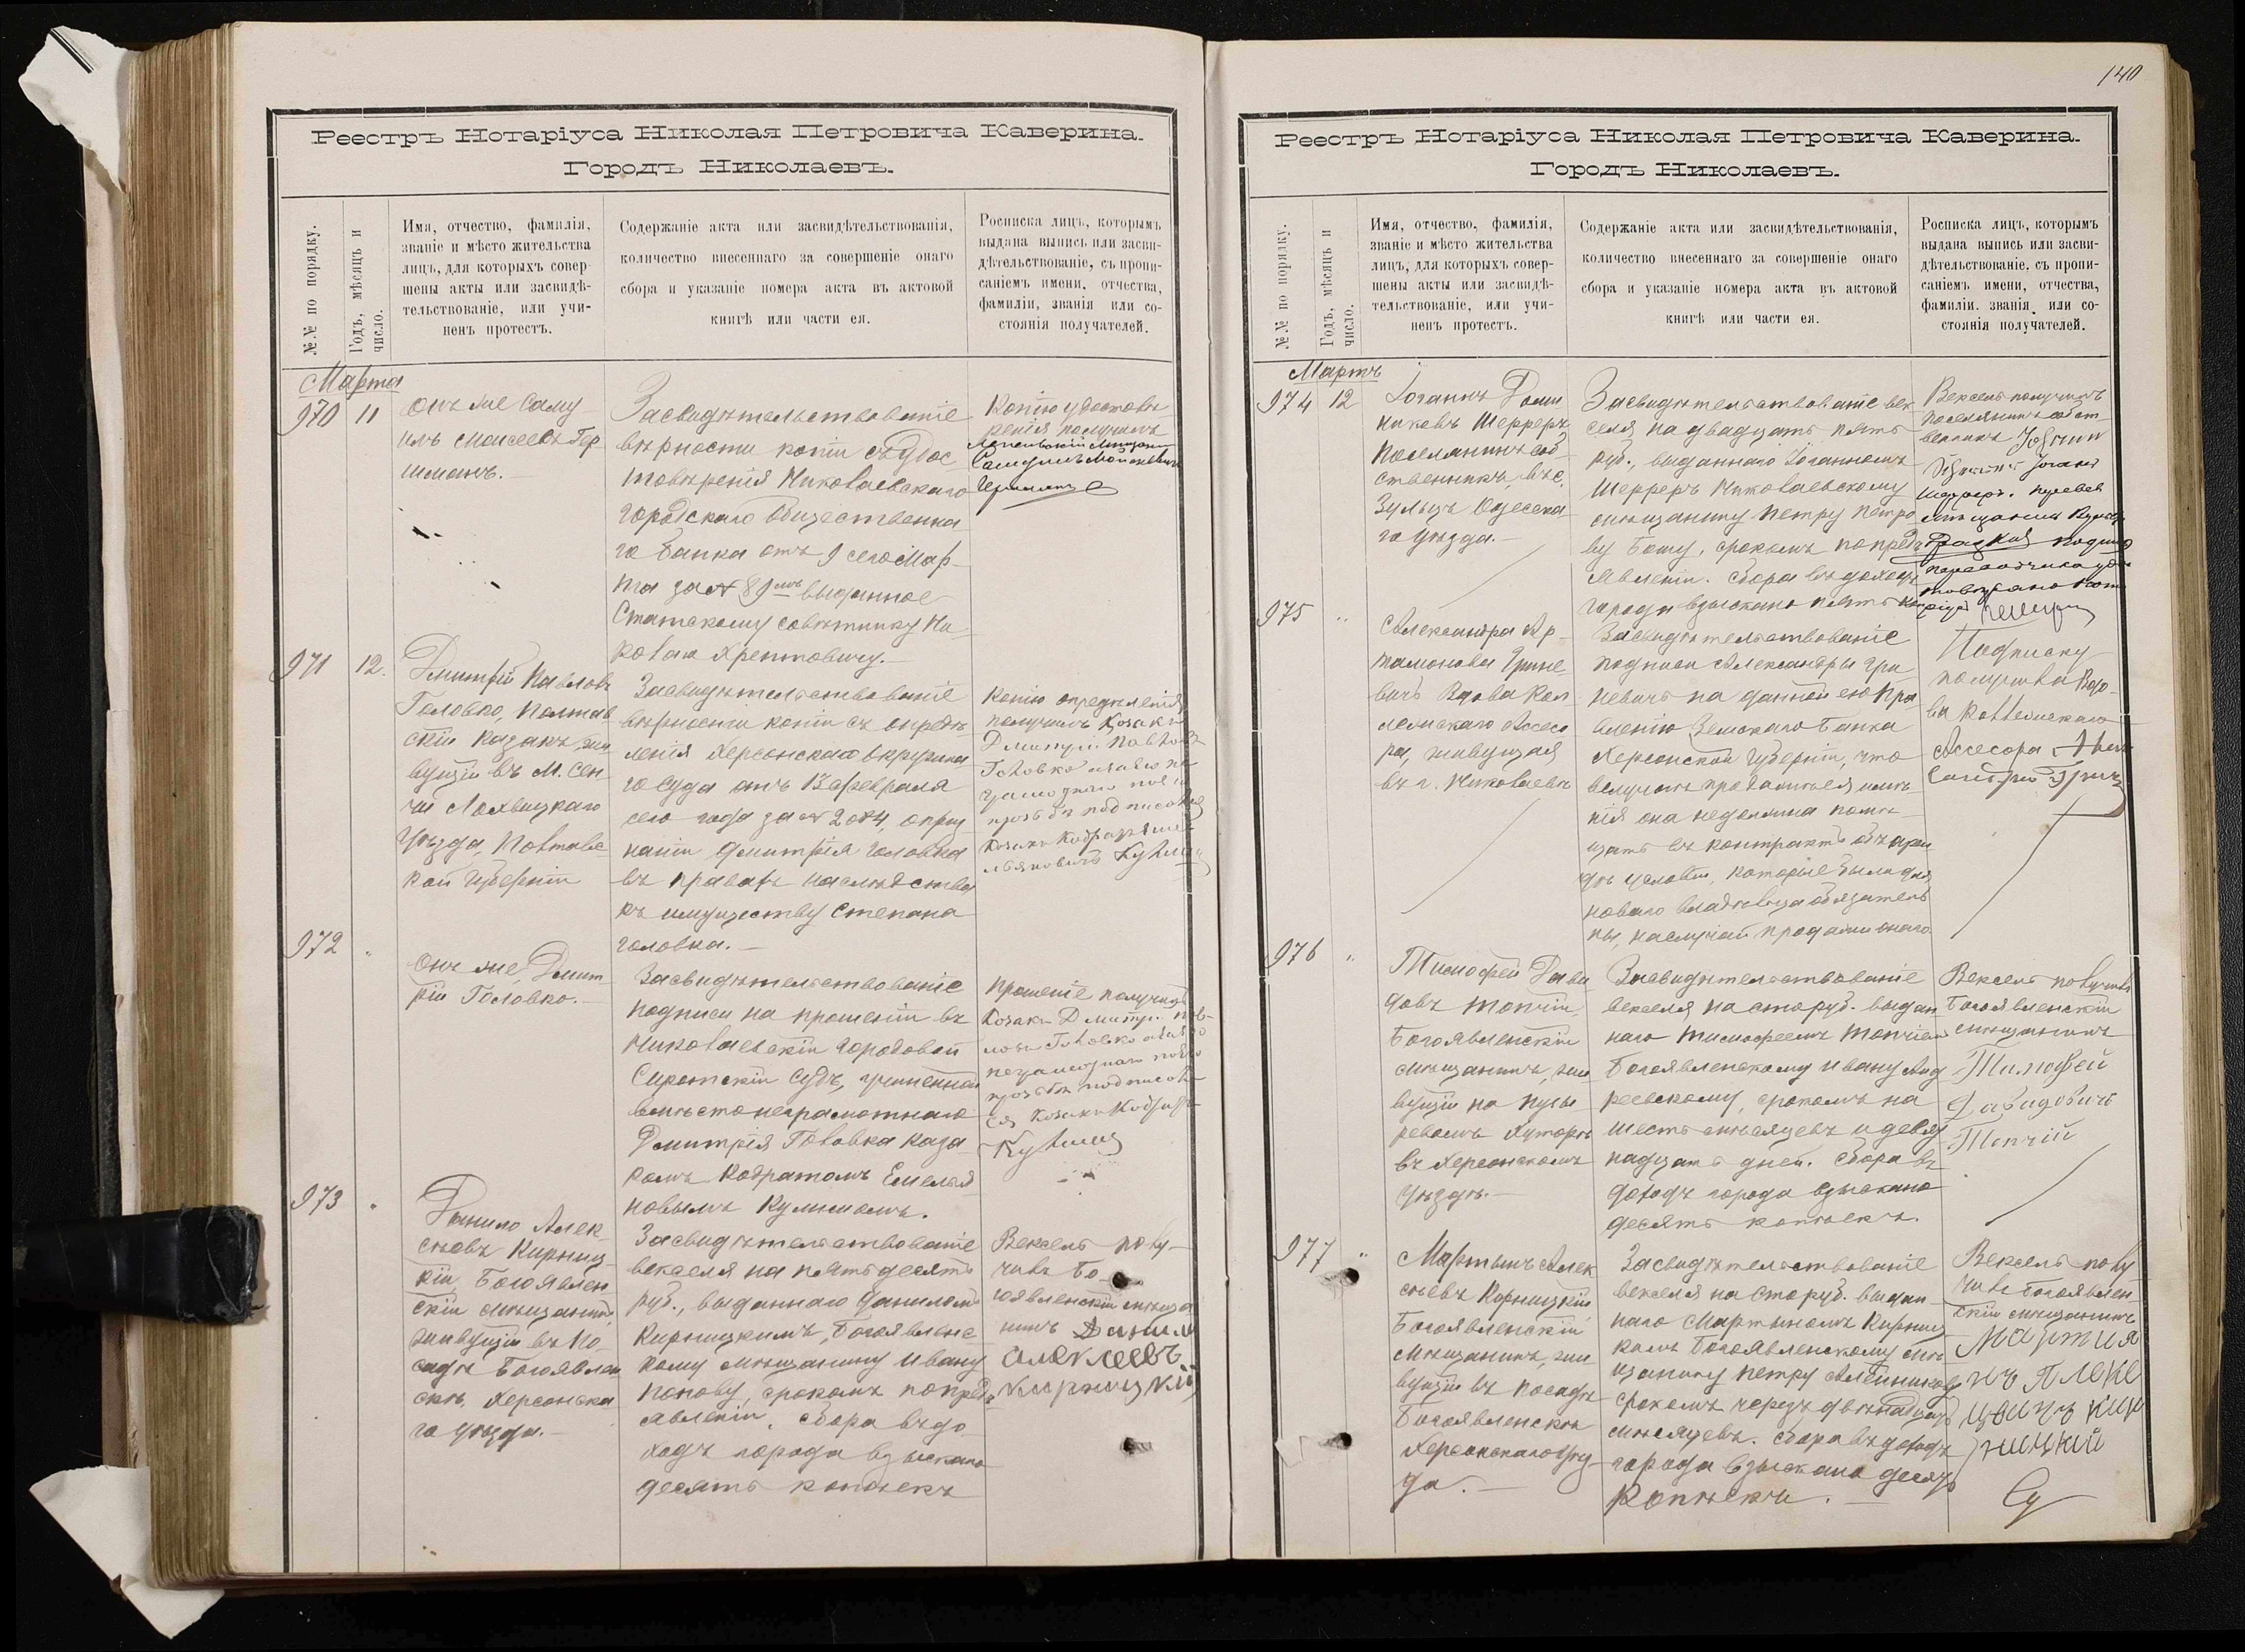 Реестръ Нотаріуса Николая Петровича Каверина.
Городъ Николаевъ.
№№ по порядку.
Годъ, мѣсяцъ и
число.
Имя, отчество, фамилія,
званіе и мѣсто жительства
лицъ, для которыхъ совер-
шены акты или засвидѣ-
тельствованіе, или учи-
ненъ протестъ.
Содержаніе акта или засвидѣтельствованія,
количество внесеннаго за совершеніе онаго
сбора и указаніе номера акта въ актовой
книгѣ или части ея.
Росписка лицъ, которымъ
выдана выпись или засви-
дѣтельствованіе, съ пропи-
саніемъ имени, отчества,
фамиліи, званія или со-
стоянія получателей.
Марта
970
11
Онъ же Саму
илъ Моисеевъ Гер
шманъ.
Засвидѣтельствованіе
вѣрности копіи съ удос
товѣренія Николаевскаго
городскаго Общественна
го банка отъ 9 сего Мар
та за № 89 выданное
Статскому совѣтнику Ни
колаю Хрептовичу.
Копію удостовѣ
ренія получилъ
971
12.
Дмитрій Павловъ
Головко, Полтав
скій казакъ, жи
вущій въ М. Сен
чи Лохвицкаго
Уѣзда, Полтавс
кой Губерніи
Засвидѣтельствованіе
вѣрности копіи съ опредѣ
ленія Херсонскаго окружна
го суда отъ
февраля
сего года за № 2084, о приз
наніи Дмитрія Головка
въ правахъ наслѣдства
къ имуществу Степана
Головка.
Копію опредѣленія
получилъ Козакъ
Дмитрій Павловъ
Головко а за его не
грамотнаго по его
прозьбѣ подписался
972
"
Онъ же, Дмит
рій Головко.
Засвидѣтельствованіе
подписи на прошеніи въ
Николаевскій городовой
Сиротскій Судъ, учиненной
вмѣсто неграмотнаго
Дмитрія Головка каза
комъ Кодратомъ Емелья
новымъ Кулишомъ.
Прошеніе получилъ
Козакъ Дмитрій Пав-
ловъ Головко а за его
неграмотнаго по его
прозьбѣ подписал-
ся козакъ Кодратъ
Кулишъ
973
"
Данило Алек
сѣевъ Кирниц
кій Богоявлен
скій мѣщанинъ,
живущій въ По
садѣ Богоявлен
скѣ, Херсонска
го уѣзда.
Засвидѣтельствованіе
векселя на пятьдесятъ
руб., выданнаго Даниломъ
Кирницкимъ, Богоявленс
кому мѣщанину Ивану
Попову, срокомъ по предъ
явленіи, сбора въ до
ходъ города взыскано
десять копѣекъ
Вексель полу-
чилъ Бо-
гоявленскій мѣща
нинъ Данило
Алексеевъ
Кирницкий
140
Реестръ Нотаріуса Николая Петровича Каверина.
Городъ Николаевъ.
№№ по порядку.
Годъ, мѣсяцъ и
число.
Имя, отчество, фамилія,
званіе и мѣсто жительства
лицъ, для которыхъ совер-
шены акты или засвидѣ-
тельствованіе, или учи-
ненъ протестъ.
Содержаніе акта или засвидѣтельствованія,
количество внесеннаго за совершеніе онаго
сбора и указаніе номера акта въ актовой
книгѣ или части ея.
Росписка лицъ, которымъ
выдана выпись или засви-
дѣтельствованіе, съ пропи-
саніемъ имени, отчества,
фамиліи, званія или со-
стоянія получателей.
Мартъ
974
12
Іоганнъ Доми
никовъ Шерреръ
Поселянинъ соб
ственникъ, въ с.
Зульцъ Одесска
го уѣзда.
Засвидѣтельствованіе век
селя, на двадцать пять
руб., выданнаго Іоганномъ
Шерреръ Николаевскому
мѣщанину Петру Петро
ву Бошу, срокомъ по предъ
явленіи. сбора въ доходъ
города взыскано пять коп.
Вексель получилъ
поселянинъ собст
венникъ
975
"
Александра Ар
тамонова Грине
вичъ Вдова Кол
лежскаго Ассесо
ра, живущая
въ г. Николаевѣ
Засвидѣтельствованіе
подписи Александры Гри
невичъ на данной ею Пра
вленію Земскаго банка
Херсонской Губерніи, что
въ случаѣ продажи ея имѣ
нія она не должна помѣ
щать въ контрактъ объ арен
дѣ условій, которые были для
новаго владѣльца обязатель
ны, на случай продажи онаго
Подписку
получила Вдо-
ва Коллежскаго
Ассесора
976
"
Тимофей Дави
довъ Топчій,
Богоявленскій
мѣщанинъ, жи
вущій на Пузы
ревомъ Хуторѣ
въ Херсонскомъ
уѣздѣ.
Засвидѣтельствованіе
векселя на сто руб. выдан
наго Тимофеемъ Топчіемъ
Богоявленскому Ивану Анд
реевскому, срокомъ на
шесть мѣсяцевъ и девят
надцать дней. сбора въ
доходъ города взыскано
десять копѣекъ.
Вексель получилъ
Богоявленскій
мѣщанинъ
Тимофей
Давидовичъ
Топчій
977
"
Мартынъ Алек
сѣевъ Кирницкій
Богоявленскій
мѣщанинъ, жи
вущій въ посадѣ
Богоявленскѣ
Херсонскаго Уѣз
да.
Засвидѣтельствованіе
векселя на сто руб. выдан
наго Мартыномъ Кирниц
кимъ Богоявленскому мѣ
щанину Петру Алейникову
срокомъ черезъ двѣнадцать
мѣсяцевъ. сбора въ доходъ
города взыскано десять
копѣекъ.
Вексель полу
чилъ Богоявлен
скій мѣщанинъ